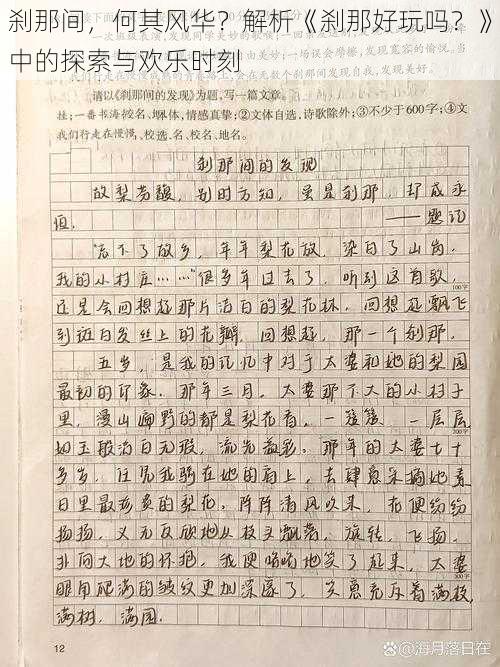 刹那间，何其风华？解析《刹那好玩吗？》
中的探索与欢乐时刻
请以《刹那间的发现》为题，写一篇文章。
刹那间的发现
故梨芳馥，别时方知，虽是刹那，却成永
恒。
——题记
“忘不了故乡，年年梨花放，染白了山岗，
我的小村庄……”很多年过去了，听到这首歌，
100字
还是会回想起那片洁白的梨花林，回想起飘飞
到斑白发丝上的花瓣，回想起，那一个刹那。
五岁，是我的记忆中对于太婆和她的梨园
最初的印象。那年三月，太婆那不大的小村子
里，漫山遍野的都是梨花香，一簇簇，一层层，
200字
如玉般洁白无瑕，流光益彩。那年的太婆七十
多岁，任凭我骑在她的肩上，去肆意采摘她素
日里最珍贵的梨花。阵阵清风吹来，花便纷纷
扬扬，义无反顾地从枝头飘落，旋转，飞扬，
扑向大地的怀抱，我便咯咯地笑了起来，太婆
300字
眼角爬满的皱纹更加深邃了，笑意充斥着满枝，
满树，满园。
12
海月落日在